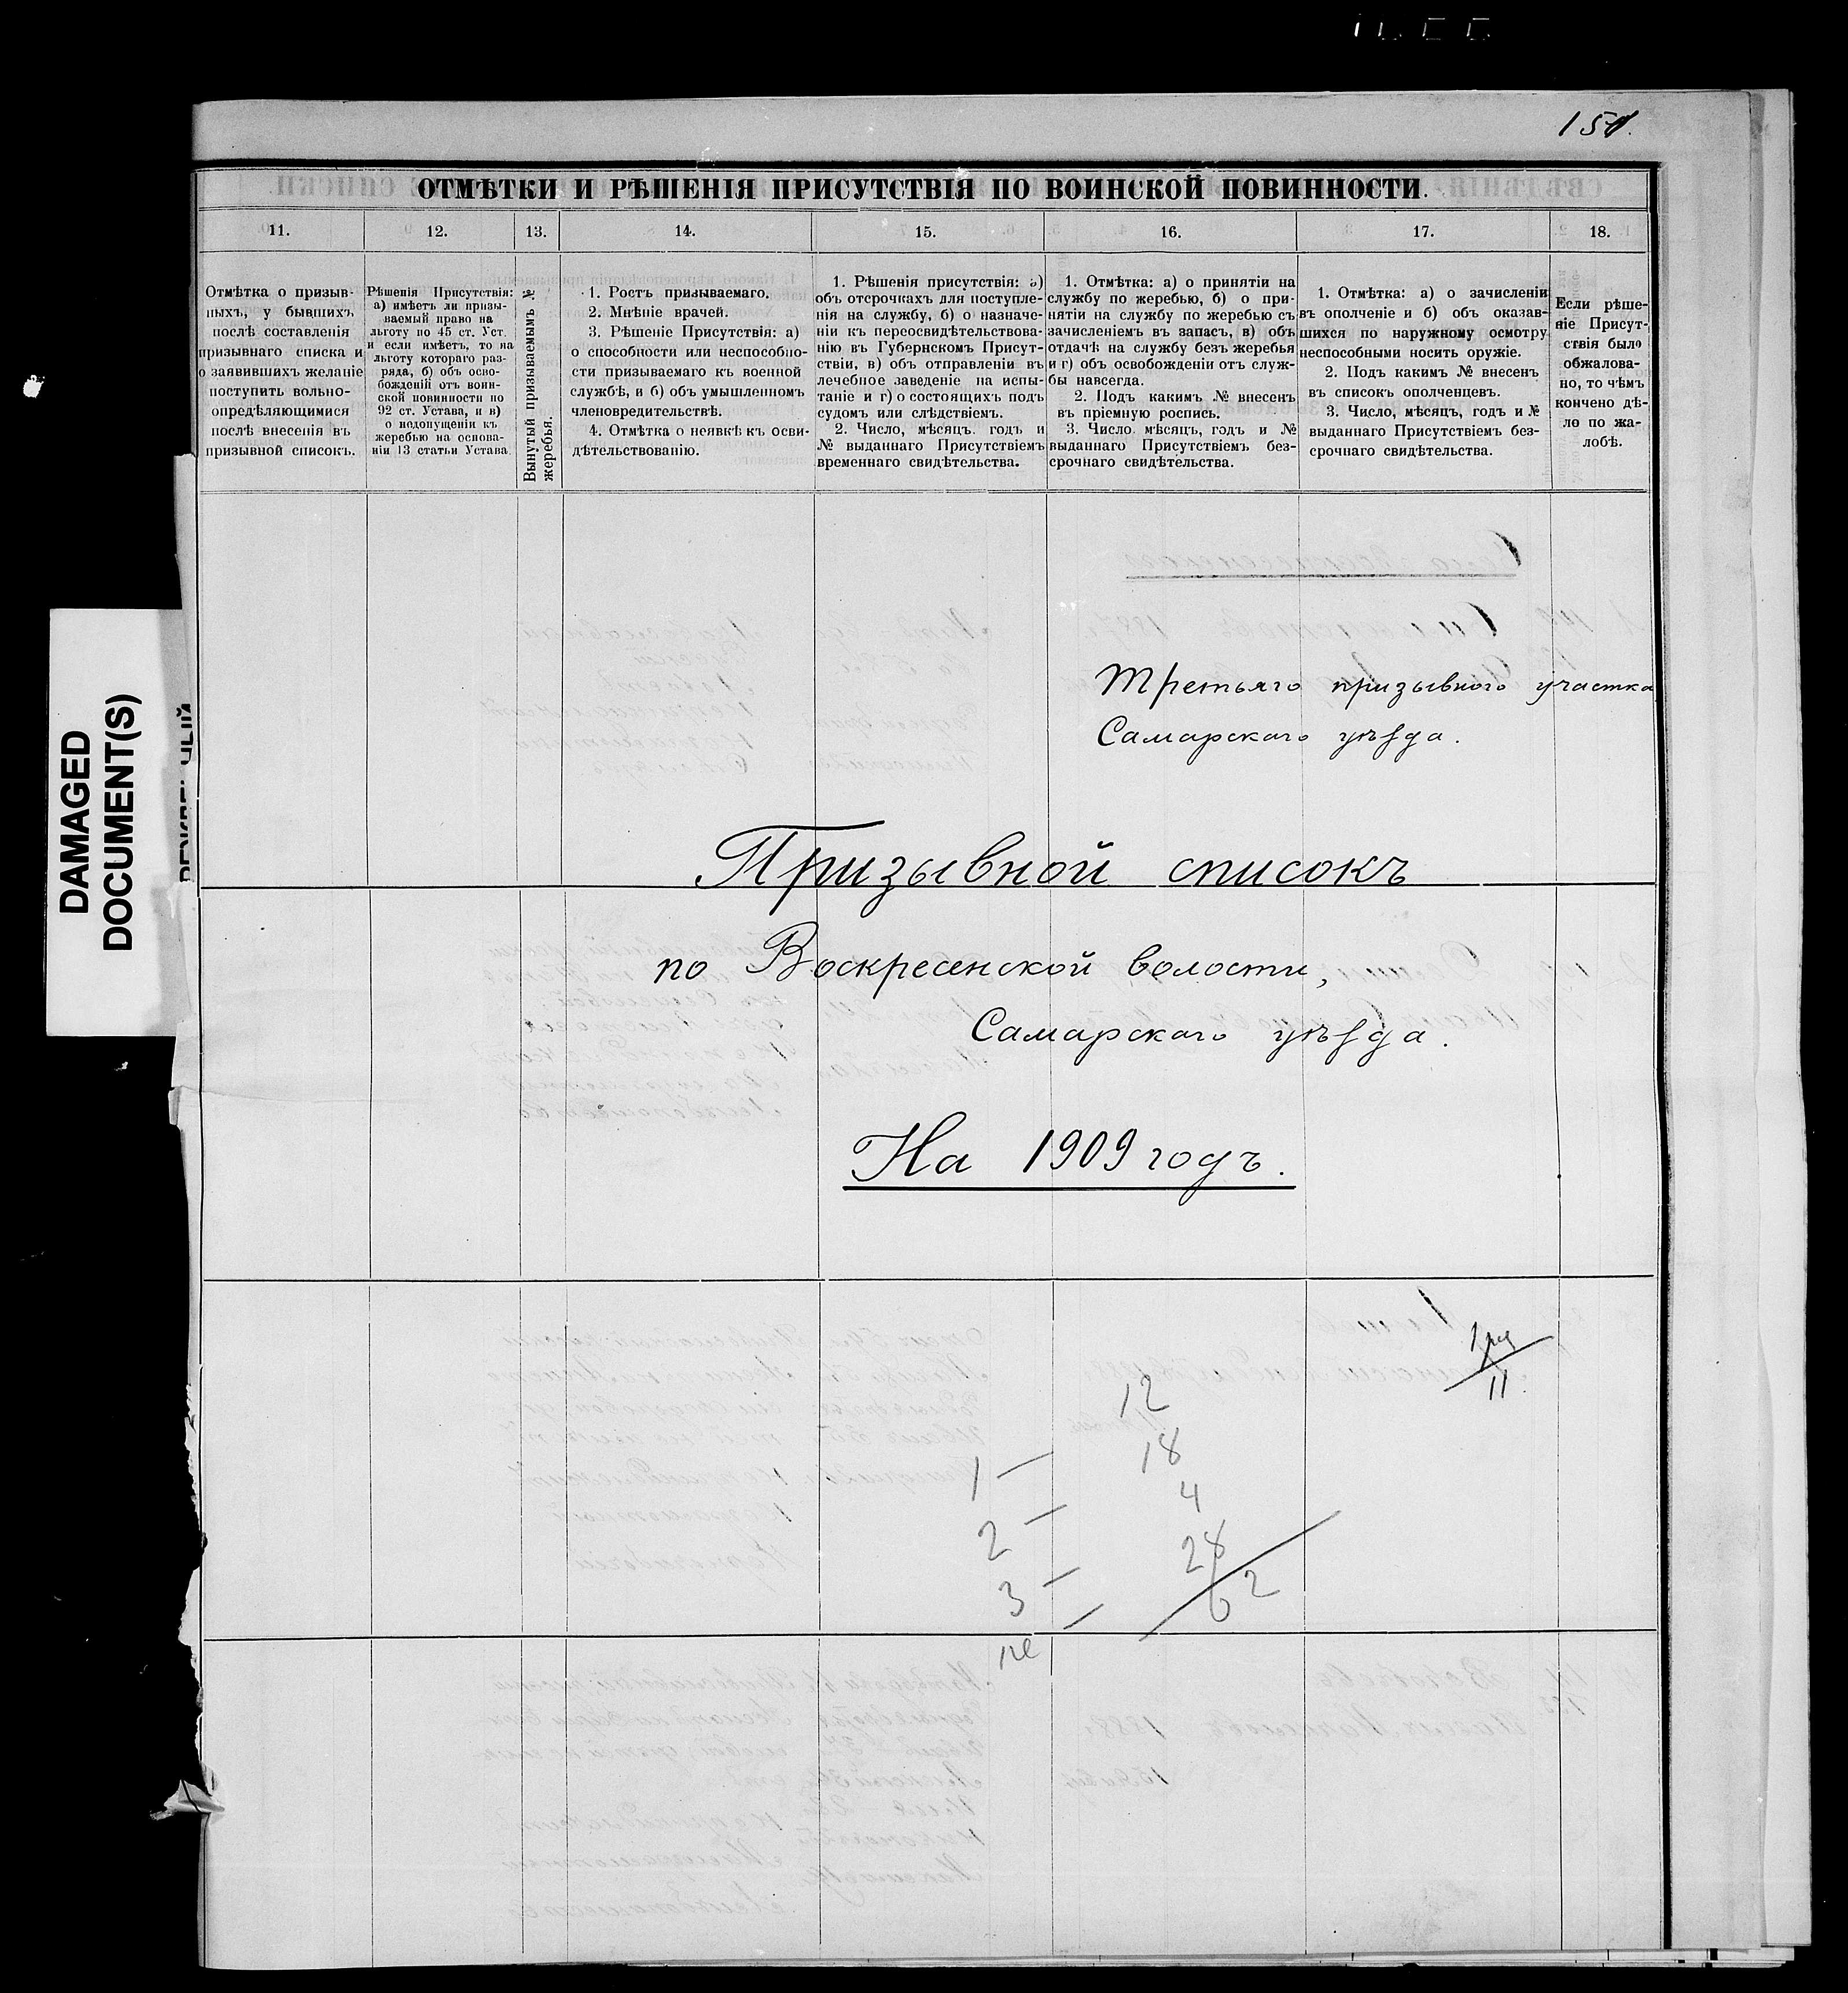 151.
ОТМѢТКИ И РѢШЕНІЯ ПРИСУТСТВІЯ ПО ВОИНСКОЙ ПОВИННОСТИ.
11.
12.
13.
14.
15.
16.
17.
18.
Отмѣтка о призыв-
ныхъ, у бывшихъ
послѣ составленія
призывнаго списка и
о заявившихъ желаніе
поступить вольно-
опредѣляющимися
послѣ внесенія въ
призывной списокъ.
Рѣшенія Присутствія:
а) имѣетъ ли призы-
ваемый право на
льготу по 45 ст. Уст.
и если имѣетъ, то на
льготу котораго раз-
ряда, б) объ осво-
божденіи отъ воин-
ской повинности по
92 ст. Устава, и в)
о недопущеніи къ
жеребью на основа-
ніи 13 статьи Устава.
Вынутый призываемымъ №
жеребья.
1. Ростъ призываемаго.
2. Мнѣніе врачей.
3. Рѣшеніе Присутствія: а)
о способности или неспособно-
сти призываемаго къ военной
службѣ, и б) объ умышленномъ
членовредительствѣ.
4. Отмѣтка о неявкѣ къ осви-
дѣтельствованію.
1. Рѣшенія присутствія: а)
объ отсрочкахъ для поступле-
нія на службу, б) о назначе-
ніи къ переосвидѣтельствова-
нію въ Губернскомъ Присут-
ствіи, в) объ отправленіи въ
лечебное заведеніе на испы-
таніе и г) о состоящихъ подъ
судомъ или слѣдствіемъ.
2. Число, мѣсяцъ. годъ и
№ выданнаго Присутствіемъ
временнаго свидѣтельства.
1. Отмѣтка: а) о принятіи на
службу по жеребью, б) о при-
нятіи на службу по жеребью съ
зачисленіемъ въ запасъ, в) объ
отдачѣ на службу безъ жеребья
и г) объ освобожденіи отъ служ-
бы навсегда.
2. Подъ какимъ № внесенъ
въ пріемную роспись.
3. Число мѣсяцъ, годъ и №
выданнаго Присутствіемъ без-
срочнаго свидѣтельства.
1. Отмѣтка: а) о зачисленіи
въ ополченіе и б) объ оказав-
шихся по наружному осмотру
неспособными носить оружіе.
2. Подъ какимъ № внесенъ
въ списокъ ополченцевъ.
3. Число, мѣсяцъ, годъ и №
выданнаго Присутствіемъ без-
срочнаго свидѣтельства.
Если рѣше-
ніе Присут-
ствія было
обжалова-
но, то чѣмъ
кончено дѣ-
ло по жа-
лобѣ.
Третьяго призывного участка
Самарскаго уѣзда.
DAMAGED
DOCUMENT(S)
Призывной списокъ
по Воскресенской волости,
Самарскаго уѣзда.
На 1909 годъ.
11.
1 — 12
2 — 18
3 — 4
— 28
62